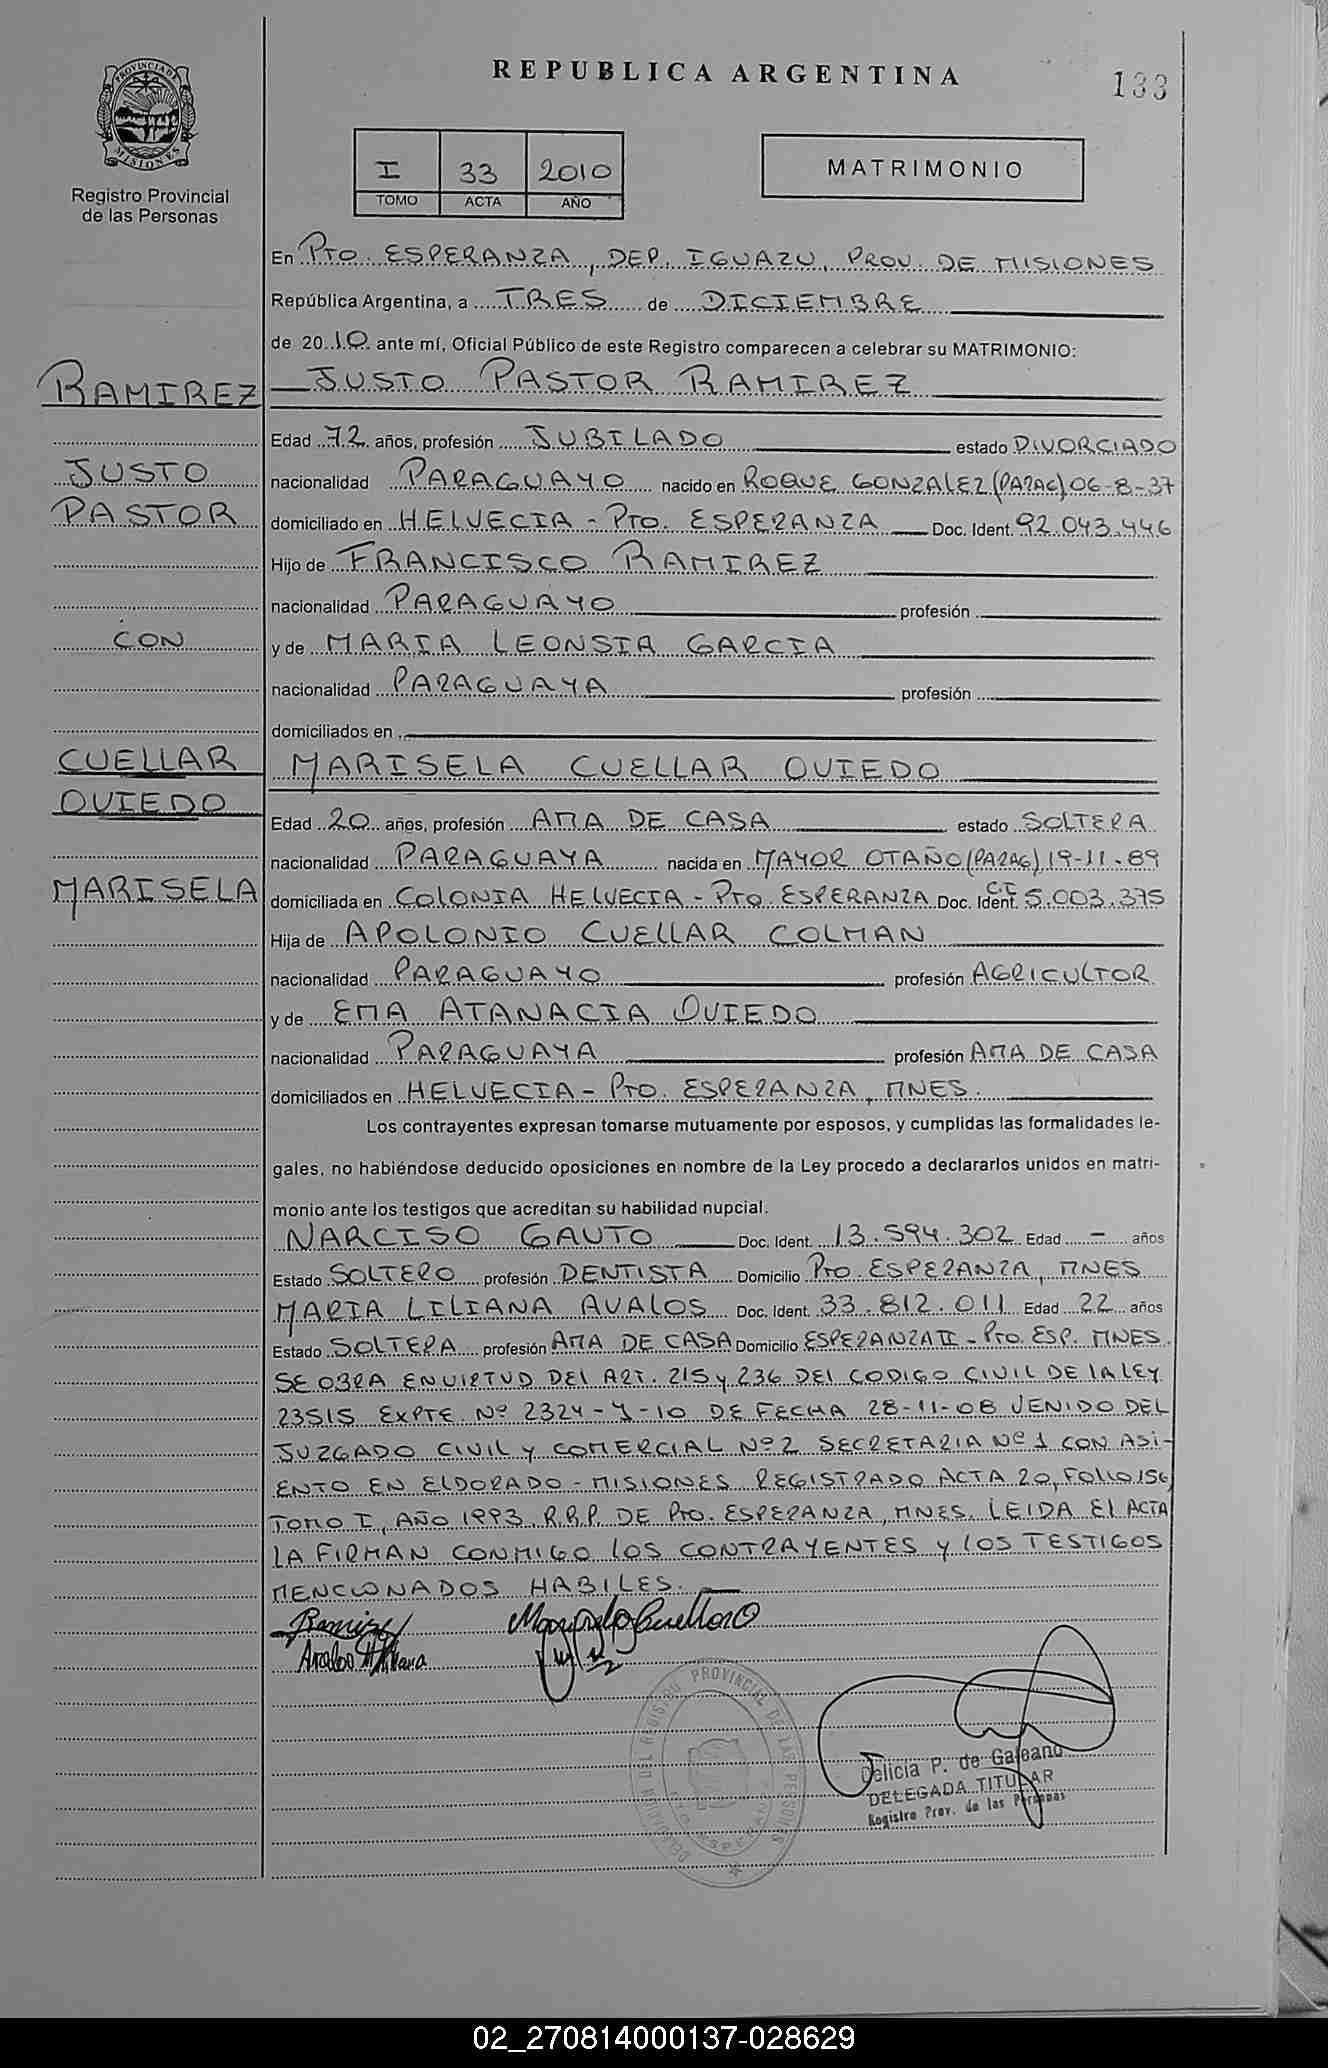 REPUBLICA ARGENTINA
133
PROVINCIA DE MISIONES
Registro Provincial
de las Personas
I 33 2010
TOMO ACTA AÑO
MATRIMONIO
En PTO. ESPERANZA, DEP. IGUAZU, PROV. DE MISIONES
República Argentina, a TRES de DICIEMBRE
de 2010 ante mí, Oficial Público de este Registro comparecen a celebrar su MATRIMONIO:
RAMIREZ
JUSTO
PASTOR
CON
CUELLAR
OVIEDO
MARISELA
JUSTO PASTOR RAMIREZ
Edad 72 años, profesión JUBILADO estado DIVORCIADO
nacionalidad PARAGUAYO nacido en ROQUE GONZALEZ (PARAG) 06-8-37
domiciliado en HELVECIA - PTO. ESPERANZA Doc. Ident. 92.043.446
Hijo de FRANCISCO RAMIREZ
nacionalidad PARAGUAYO profesión
y de MARIA LEONSIA GARCIA
nacionalidad PARAGUAYA profesión
domiciliados en
MARISELA CUELLAR OVIEDO
Edad 20 años, profesión AMA DE CASA estado SOLTERA
nacionalidad PARAGUAYA nacida en MAYOR OTAÑO (PARAG) 19-11-89
domiciliada en COLONIA HELVECIA - PTO. ESPERANZA Doc. Ident. C.I 5.003.375
Hija de APOLONIO CUELLAR COLMAN
nacionalidad PARAGUAYO profesión AGRICULTOR
y de EMA ATANACIA OVIEDO
nacionalidad PARAGUAYA profesión AMA DE CASA
domiciliados en HELVECIA - PTO. ESPERANZA, MNES.
Los contrayentes expresan tomarse mutuamente por esposos, y cumplidas las formalidades le-
gales, no habiéndose deducido oposiciones en nombre de la Ley procedo a declararlos unidos en matri-
monio ante los testigos que acreditan su habilidad nupcial.
NARCISO GAUTO Doc. Ident. 13.594.302 Edad - años
Estado SOLTERO profesión DENTISTA Domicilio PTO. ESPERANZA, MNES
MARIA LILIANA AVALOS Doc. Ident. 33.812.011 Edad 22 años
Estado SOLTERA profesión AMA DE CASA Domicilio ESPERANZA II - PTO. ESP. MNES.
SE OBRA EN VIRTUD DEL ART. 215 y 236 DEL CODIGO CIVIL DE LA LEY
23515 EXPTE Nº 2324-Y-10 DE FECHA 28-11-08 VENIDO DEL
JUZGADO CIVIL y COMERCIAL Nº 2 SECRETARIA Nº 1 CON ASI-
ENTO EN ELDORADO - MISIONES REGISTRADO ACTA 20, FOLIO 156
TOMO I, AÑO 1993 R.R.P. DE PTO. ESPERANZA, MNES. LEIDA El ACTA
LA FIRMAN CONMIGO LOS CONTRAYENTES y LOS TESTIGOS
MENCIONADOS HABILES.
Ramirez
Delicia P. de Galeano
DELEGADA TITULAR
Registro Prov. de las Personas
02_270814000137-028629